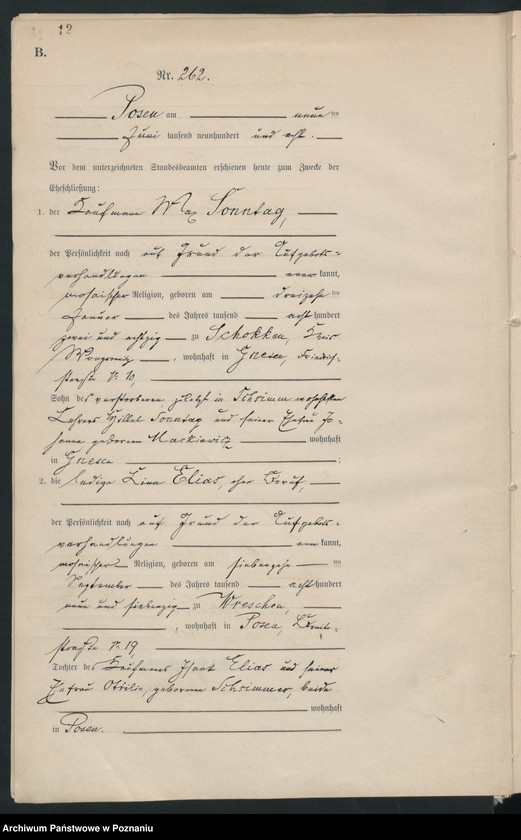 12
B.
Nr. 262.
Posen am neun ten
Juni tausend neunhundert und acht.
Vor dem unterzeichneten Standesbeamten erschienen heute zum Zwecke der
Eheschließung:
1. der Kaufmann Max Sonntag,
der Persönlichkeit nach auf Grund der Aufgebots-
verhandlungen anerkannt,
mosaischer Religion, geboren am dreizehn ten
Januar des Jahres tausend acht hundert
zwei und achtzig zu Schokken, Kreis
Wongrowitz, wohnhaft in Gnesen, Friedrich-
straße N. 10,
Sohn des verstorbenen zuletzt in Schrimm wohnhaften
Lehrers Hillel Sonntag und seiner Ehefrau Jo-
hanna geborenen Mackiewicz wohnhaft
in Gnesen;
2. die ledige Lina Elias, ohne Beruf,
der Persönlichkeit nach auf Grund der Aufgebots-
verhandlungen anerkannt,
mosaischer Religion, geboren am siebenzehn ten
September des Jahres tausend acht hundert
neun und siebenzig zu Wreschen,
, wohnhaft in Posen, Breite-
straße N. 19,
Tochter des Kaufmanns Isaak Elias und seiner
Ehefrau Ottilie, geborenen Schrimmer, beide
wohnhaft
in Posen.
Archiwum Państwowe w Poznaniu